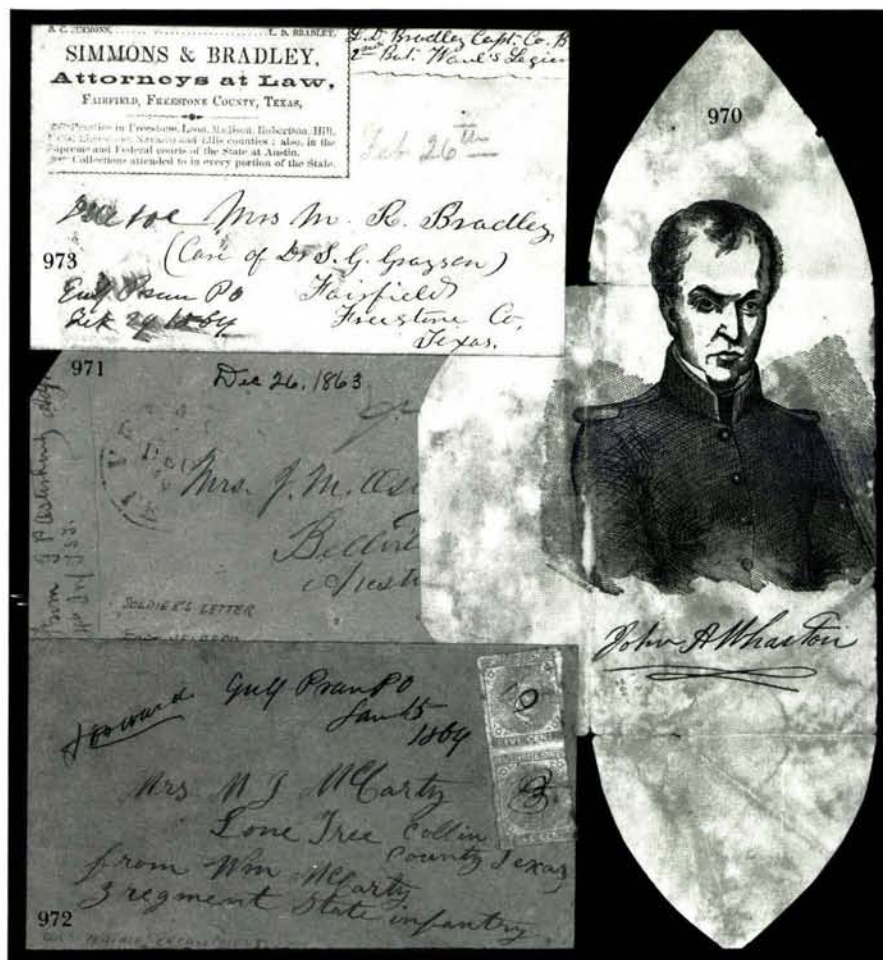 L. D. BRADLEY.
SIMMONS & BRADLEY,
Attorneys at Law,
FAIRFIELD, FREESTONE COUNTY, TEXAS,
Practice in Freestone, Leon, Madison, Robertson, Hill,
Navarro and Ellis counties; also, in the
Supreme and Federal courts of the State at Austin.
Collections attended to in every portion of the State.
L. D. Bradley Capt. Co. B
2nd Bat. Waul's Legion
Feb 26th
Mrs M. R. Bradley
(Care of Dr S. G. Grayson)
Fairfield
Freestone Co,
Texas.
973
Gulf Prairie PO
24 1864
971
Dec 26, 1863
Mrs. J. M. Os
Bellvil
SOLDIER'S LETTER
970
John A Wharton
forward
Gulf Prari PO
Jan 15
1864
FIVE CENTS
Mrs N J McCarty
Lone Tree Collin
County Texas
from Wm McCarty
3 regiment State infantry
972